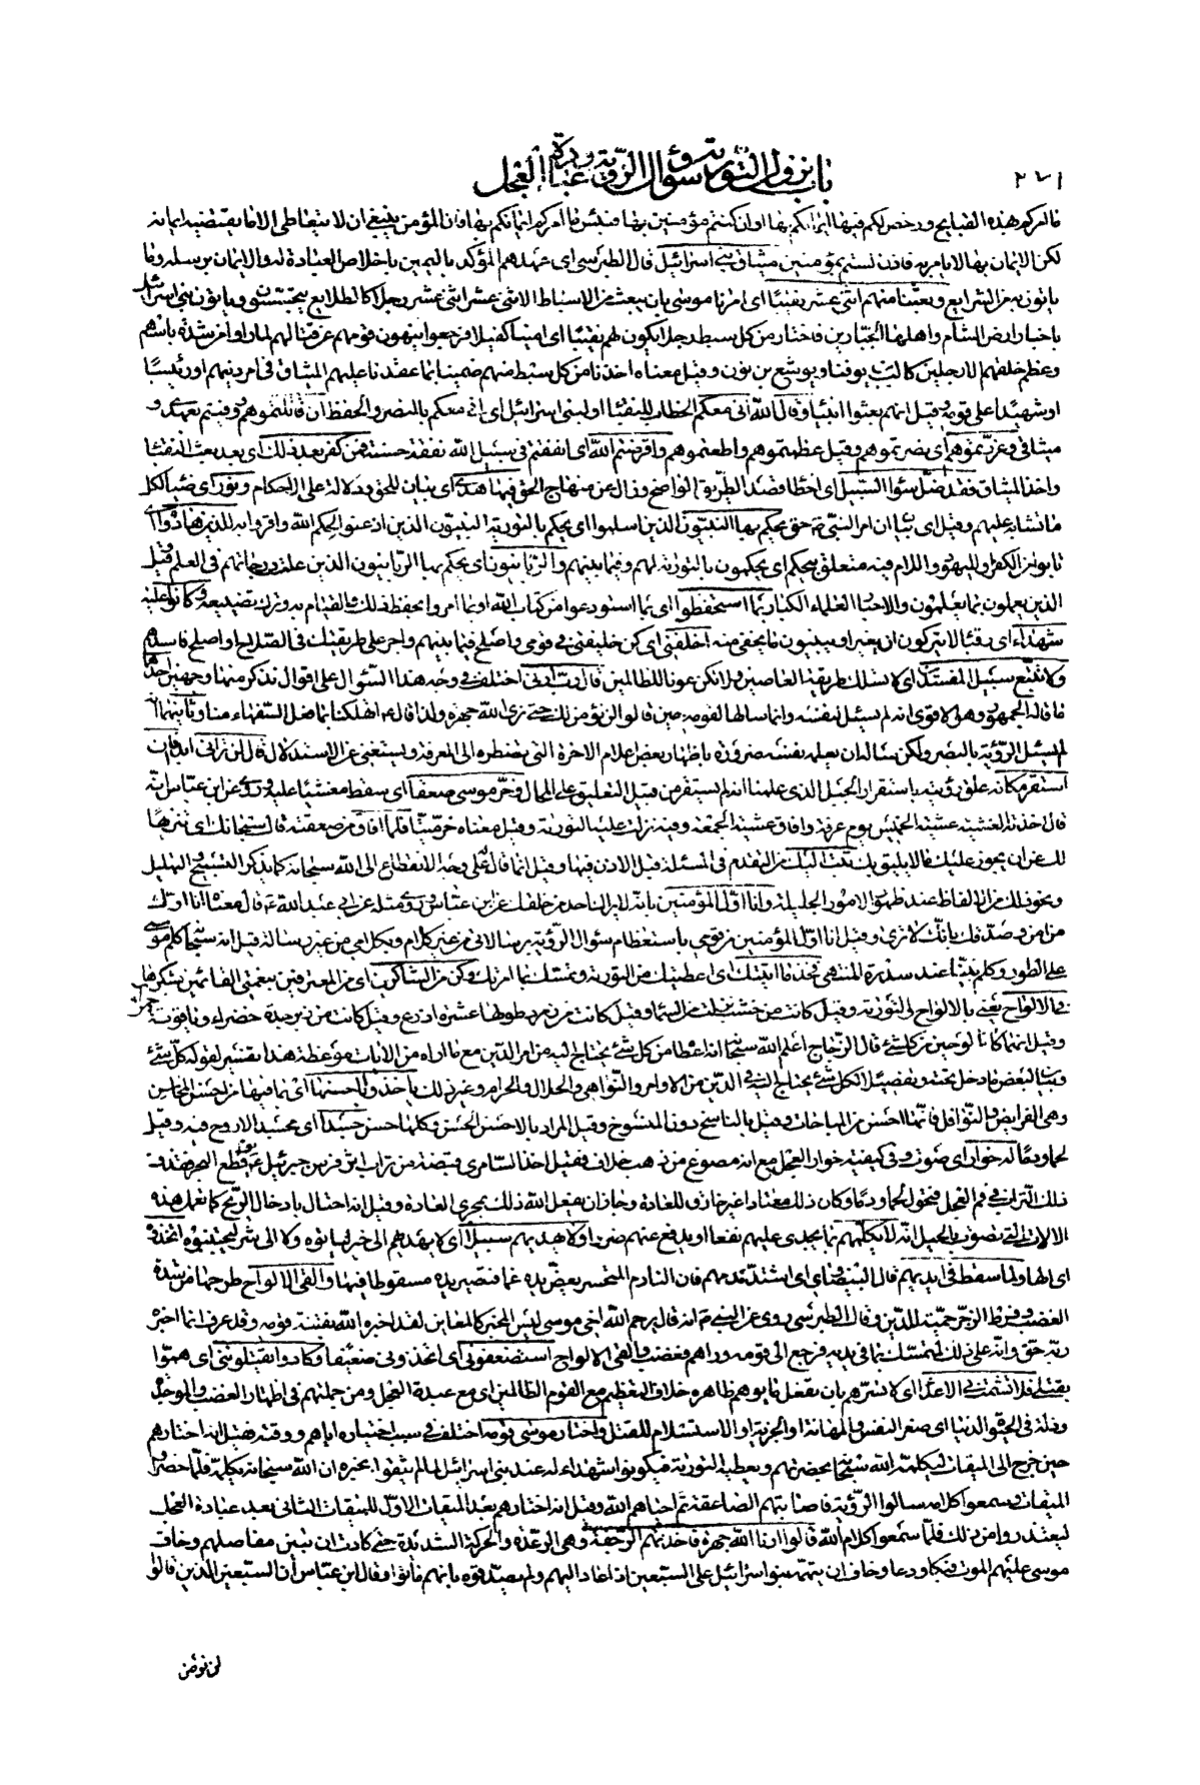 ٢٧١
باب نزول التورية وسؤال الرؤية وعبادة العجل
فالمركم بهذه القبايح ورخص لكم فيها ايمانكم بها او ان كنتم مؤمنين بها فبئس ما امركم ايمانكم بها فان المؤمن ينبغي ان لا يتعاطى الا ما يقتضيه ايمانه
لكن الايمان بها لا يامر به فاذن لستم بمؤمنين ميثاق بني اسرائيل قال الطبرسي اي عهدهم المؤكد باليمين باخلاص العبادة له والايمان برسله وما
ياتون به من الشرايع وبعثنا منهم اثني عشر نقيبا اي امرنا موسى بان يبعث من الاسباط الاثني عشر اثني عشر رجلا كالطلايع يتجسسون وياتون بني اسرائيل
باخبار ارض الشام واهلها الجبارين فاختار من كل سبط رجلا يكون لهم نقيبا اي امينا كفيلا فرجعوا ينهون قومهم عن قتالهم لما راوا من شدة باسهم
وعظم خلقهم الا رجلين كالب بن يوفنا ويوشع بن نون وقيل معناه اخذنا من كل سبط منهم ضمينا بما عقدنا عليهم الميثاق في امر دينهم او رئيسا
او شهيدا على قومه وقيل انهم بعثوا انبياء وقال الله اني معكم الخطاب للنقباء او لبني اسرائيل اي اني معكم بالنصر والحفظ ان قاتلتموهم وفيتم بعهدي و
ميثاقي وعزرتموهم اي نصرتموهم وقيل عظمتموهم واطعتموهم واقرضتم الله اي انفقتم في سبيل الله نفقة حسنة فمن كفر بعد ذلك اي بعد بعث النقباء
واخذ الميثاق فقد ضل سواء السبيل اي اخطأ قصد الطريق الواضح وزال عن منهاج الحق فيها هدى اي بيان للحق ودلالة على الاحكام ونور اي ضياء لكل
ما تشابه عليهم وقيل اي بيان ان امر النبي ص حق يحكم بها النبيون الذين اسلموا اي يحكم بالتورية النبيون الذين اذعنوا لحكم الله واقروا به للذين هادوا اي
تابوا من الكفر او لليهود واللام فيه متعلق بيحكم اي يحكمون بالتورية لهم وفيما بينهم والربانيون اي يحكم بها الربانيون الذين علت درجاتهم في العلم وقيل
الذين يعملون بما يعلمون والاحبار العلماء الكبار بما استحفظوا اي بما استودعوا من كتاب الله او بما امروا بحفظ ذلك والقيام به وترك تضييعه وكانوا عليه
شهداء اي رقباء لا يتركون ان يغير او يبينون ما يخفى منه اخلفني اي كن خليفتي في قومي واصلح فيما بينهم واجر على طريقتك في الصلاح او اصلح فاسدهم
ولا تتبع سبيل المفسدين اي لا تسلك طريقة العاصين ولا تكن عونا للظالمين قال رب ارني اختلف في وجه هذا السؤال على اقوال نذكر منها وجهين احدهما
ما قاله الجمهور وهو الاقوى انه لم يسئل لنفسه وانما سالها لقومه حين قالوا لن نؤمن لك حتى نرى الله جهرة ولذا قال ع اتهلكنا بما فعل السفهاء منا وثانيهما انه
لم يسئل الرؤية بالبصر ولكن ساله ان يعلمه نفسه ضرورة باظهار بعض اعلام الاخرة التي تضطره الى المعرفة ويستغني عن الاستدلال قال لن تراني ابدا فان
استقر مكانه علق رؤيته باستقرار الجبل الذي علمنا انه لم يستقر من قبيل التعليق على المحال وخر موسى صعقا اي سقط مغشيا عليه وروي عن ابن عباس انه
قال اخذته الغشية عشية الخميس يوم عرفة وافاق عشية الجمعة وفيه نزلت عليه التورية وقيل معناه خر ميتا فلما افاق من صعقته قال سبحانك اي تنزيها
لك عن ان يجوز عليك ما لا يليق بك تبت اليك من التقدم في المسئلة قبل الاذن فيها وقيل انما قاله على وجه الانقطاع الى الله سبحانه كما يذكر التسبيح والتهليل
ونحو ذلك من الالفاظ عند ظهور الامور الجليلة وانا اول المؤمنين بانه لا يراك احد من خلقك عن ابن عباس وروي مثله عن ابي عبد الله ع قال معناه انا اول
من امن وصدق بانك لا ترى وقيل انا اول المؤمنين من قومي باستعظام سؤال الرؤية برسالاتي من غير كلام وبكلامي من غير رسالة قيل انه سبحانه كلم موسى
على الطور وكلم نبينا عند سدرة المنتهى فخذ ما اتيتك اي اعطيتك من التورية وتمسك بما امرتك وكن من الشاكرين اي من المعترفين بنعمتي القائمين بشكرها
في الالواح يعني بالالواح التورية وقيل كانت من خشب نزلت من السماء وقيل كانت من زمرد طولها عشرة اذرع وقيل كانت من زبرجدة خضراء وياقوتة حمراء
وقيل انهما كانا لوحين من كل شئ قال الزجاج اعلم الله سبحانه انه اعطاه من كل شئ يحتاج اليه من امر الدين مع ما اراه من الايات موعظة هذا تفسير لقوله كل شئ
وبيان لبعض ما دخل تحته وتفصيلا لكل شئ يحتاج اليه في الدين من الاوامر والنواهي والحلال والحرام وغير ذلك ياخذوا باحسنها اي بما فيها من احسن المحاسن
وهي الفرايض والنوافل فانها احسن من المباحات وقيل بالناسخ دون المنسوخ وقيل المراد بالاحسن الحسن وكلها حسن جسدا اي مجسد الا روح فيه وقيل
لحما ودما له خوار اي صوت وفي كيفية خوار العجل مع انه مصوغ من ذهب خلاف فقيل اخذ السامري قبضة من تراب اثر فرس جبرئيل ع يوم قطع البحر فقذف
ذلك التراب في فم العجل فتحول لحما ودما وكان ذلك معتادا غير خارق للعادة وجاز ان يفعل الله ذلك بمجرى العادة وقيل انه احتال بادخال الريح كما تعمل هذه
الالات التي تصوت بالحيل انه لا يكلمهم بما يجدي عليهم نفعا او يدفع عنهم ضررا ولا يهديهم سبيلا اي لا يهديهم الى خير لياتوه ولا الى شر ليجتنبوه اتخذوه
اي الها ولما سقط في ايديهم قال البيضاوي اي اشتد ندمهم فان النادم المتحسر يعض يده غما فتصير يده مسقوطا فيها والقى الالواح طرحها من شدة
الغضب وفرط الزجر حمية للدين وقال الطبرسي روي عن النبي ص انه قال يرحم الله اخي موسى ليس المخبر كالمعاين لقد اخبره الله بفتنة قومه وقد عرف ان ما اخبره
ربه حق وانه على ذلك لمتمسك بما في يديه فرجع الى قومه وراهم فغضب والقى الالواح استضعفوني اي اتخذوني ضعيفا وكادوا يقتلونني اي هموا
بقتلي فلا تشمت بي الاعداء اي لا تسرهم بان تفعل ما يوهم ظاهره خلاف التعظيم مع القوم الظالمين اي مع عبدة العجل ومن جملتهم في اظهار الغضب والموجدة
وذلة في الحيوة الدنيا اي صغر النفس والمهانة او الجزية او الاستسلام للقتل واختار موسى قومه اختلف في سبب اختياره اياهم ووقته فقيل انه اختارهم
حين خرج الى الميقات ليكلمه الله سبحانه بحضرتهم ويعطيه التورية فيكونوا شهداء له عند بني اسرائيل لما لم يثقوا بخبره ان الله سبحانه يكلمه فلما حضروا
الميقات وسمعوا كلامه سالوا الرؤية فاصابتهم الصاعقة ثم احياهم الله وقيل انه اختارهم بعد الميقات الاول للميقات الثاني بعد عبادة العجل
ليعتذروا من ذلك فلما سمعوا كلام الله قالوا ارنا الله جهرة فاخذتهم الرجفة وهي الرعدة والحركة الشديدة حتى كادت ان تبين مفاصلهم وخاف
موسى عليهم الموت فبكى ودعا وخاف ان يتهمه بنو اسرائيل على السبعين اذا عاد اليهم ولم يصدقوه بانهم ماتوا وقال ابن عباس ان السبعين الذين قالوا
لن نؤمن